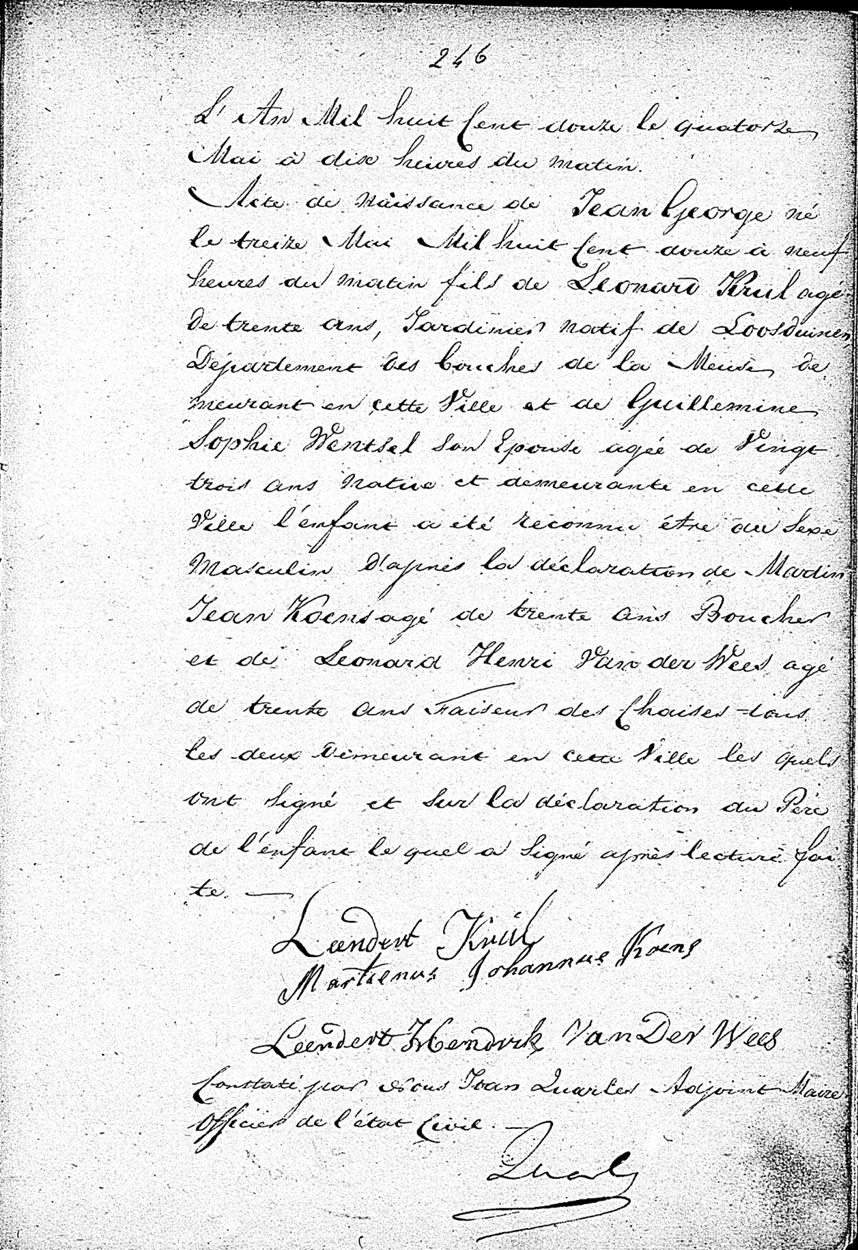 246
L'An Mil huit Cent douze le quatorze
Mai à dix heures du matin.
Acte de Naissance de Jean George né
le treize Mai Mil huit Cent douze à neuf
heures du matin fils de Leonard Krul agé
de trente ans, Jardinier natif de Loosduinen,
Département des bouches de la Meuse, de
meurant en cette Ville et de Guillemine
Sophie Wentsel son Epouse agée de Vingt
trois ans native et demeurante en cette
Ville l'enfant a été reconnu être du Sexe
Masculin D'après la déclaration de Martin
Jean Koens agé de trente ans Boucher
et de Leonard Henri Van der Wees agé
de trente ans Faiseur des Chaises tous
les deux Demeurant en cette Ville les quels
ont signé et sur la déclaration du Père
de l'enfant le quel a signé après lecture fai
te. —
Leendert Krul
Martienus Johannus Koens
Leendert Hendrik Van Der Wees
Constaté par Nous Jean Quarles Adjoint Maire
Officier de l'état Civil. —
Quarles